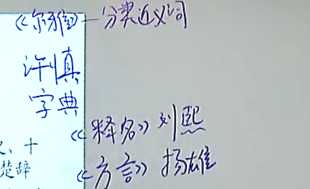 《尔雅》—分类近义词
许慎
字典
《释名》刘熙
、十
楚辞
《方言》扬雄